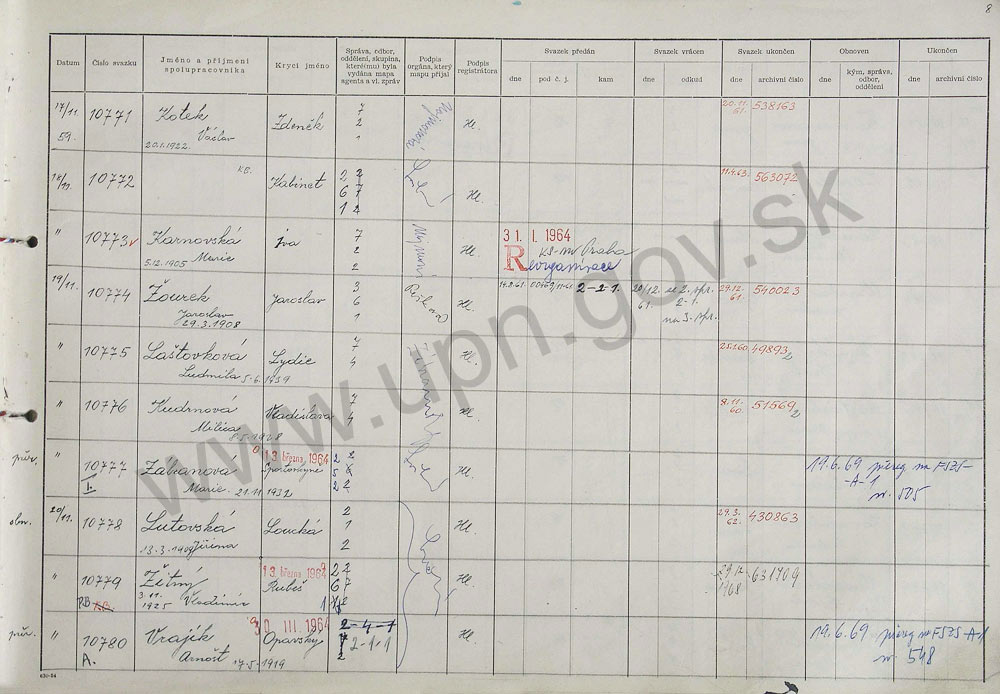 8
Datum
Číslo svazku
Jméno a příjmení
spolupracovníka
Krycí jméno
Správa, odbor,
oddělení, skupina,
které(mu) byla
vydána mapa
agenta a vl. zpráv
Podpis
orgána, který
mapu přijal
Podpis
registrátora
Svazek předán
dne
pod č. j.
kam
Svazek vrácen
dne
odkud
Svazek ukončen
dne
archivní číslo
Obnoven
dne
kým, správa,
odbor,
oddělení
Ukončen
dne
archivní číslo
17/11.
59.
10771
Kotek
Václav
20.1.1922.
Zdeněk
7
2
1
Hl.
20.11.
61.
538163
18/11.
10772
KB.
Kabinet
2 2
6 7
1 2
Hl.
11.4.63.
563072
"
10773
Karnovská
5.12.1905 Marie
Iva
7
2
2
Hl.
31. I. 1964
KS-MV Praha
Reorganisace
19/11.
10774
Žourek
Jaroslav
29.3.1908
Jaroslav
3
6
1
Hl.
2-2-1.
20/12.
61.
2-1.
na 3. spr.
29.12.
61.
540023
"
10775
Laštovková
Ludmila 5.6.1939
Lydie
7
4
Hl.
49893
2
"
10776
Kudrnová
Milica
8.5.1928
Vladislava
7
4
1
Hl.
8.11.
60
51569
2
"
10777
I.
Marie 21.11.1932
13 března 1964
Sportovkyně
Hl.
19.6.69 přereg na FSZS-
-A-1
505
20/11.
10778
Lutovská
13.3.1909 Jiřina
Loucká
2
1
2
Hl.
29.3.
62.
430863
"
10779
RB
Žitný
3.11.
1925 Vladimír
13 března 1964
Rubeš
Hl.
1968
631709
"
10780
A.
Vrajík
Arnošt 17.5.1919
30 III. 1964
Opavský
2-4-1
2-1-1
2
Hl.
19.6.69 přereg na FSZS-A-1
548
630-54
www.upn.gov.sk